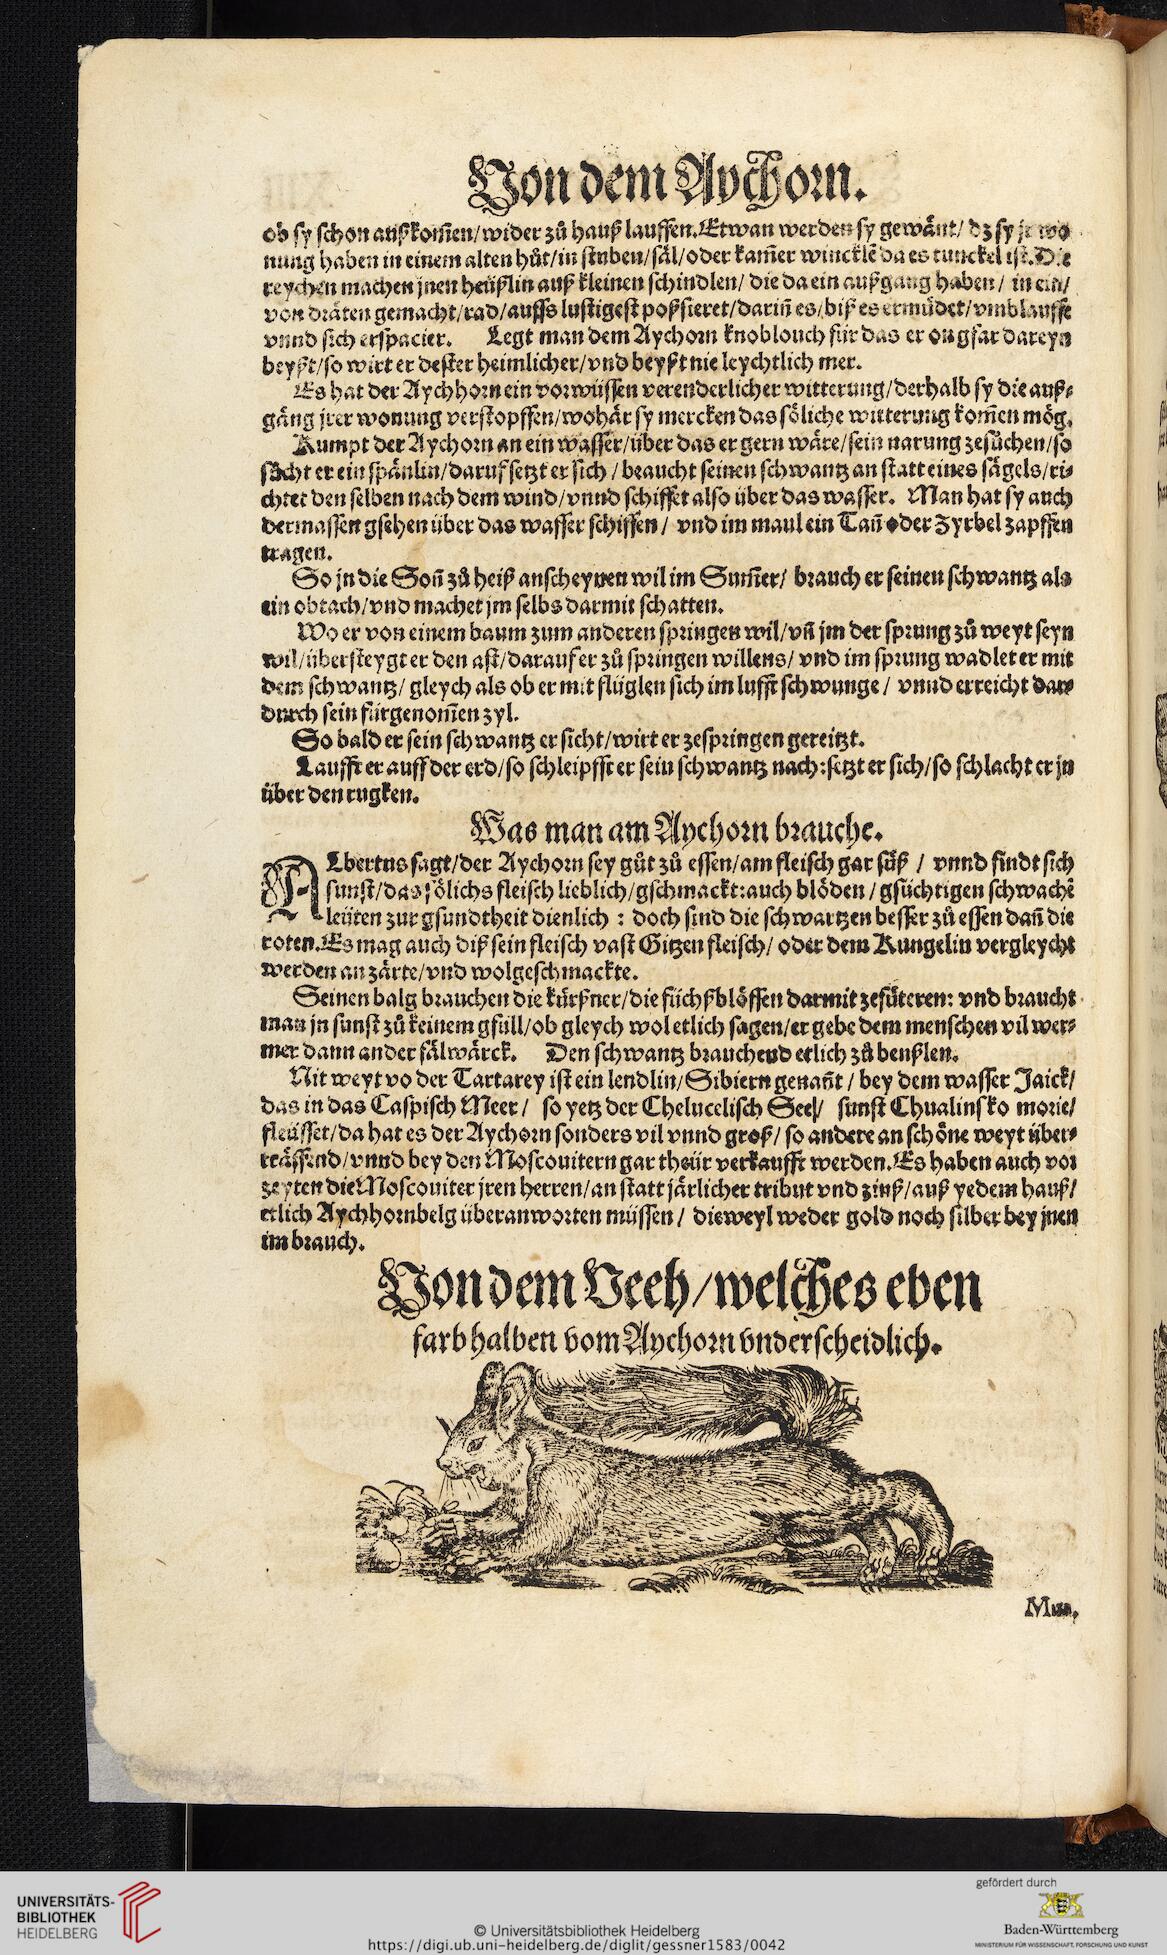 Von dem Aychorn.
ob sy schon außkom̃en/wider zů hauß lauffen. Etwan werden sy gewänt/dz sy je wo
nung haben in einem alten hůt/in stuben/säl/oder kam̃er wincklẽ da es tunckel ist. Die
reychen machen jnen heüßlin auß kleinen schindlen/die da ein außgang haben/in ein/
von dräten gemacht/rad/auffs lustigest poßsieret/dariñ es/biß es ermüdet/vmblauffe
vnnd sich erspacier. Legt man dem Aychorn knoblouch für das er ongfar dareyn
beyßt/so wirt er dester heimlicher/vnd beyßt nie leychtlich mer.
Es hat der Aychhorn ein vorwüssen verenderlicher witterung/derhalb sy die auß⸗
gäng jrer wonung verstopffen/wohär sy mercken das söliche witterung kom̃en mög.
Kumpt der Aychorn an ein wasser/über das er gern wäre/sein narung zesůchen/so
sůcht er ein spänlin/daruf setzt er sich/braucht seinen schwantz an statt eines sägels/ri⸗
chtet den selben nach dem wind/vnnd schiffet also über das wasser. Man hat sy auch
dermassen gsehen über das wasser schiffen/vnd im maul ein Tañ oder Zyrbel zapffen
tragen.
So jn die Soñ zů heiß anscheynen wil im Sum̃er/brauch er seinen schwantz als
ein obtach/vnd machet jm selbs darmit schatten.
Wo er von einem baum zum anderen springen wil/vñ jm der sprung zů weyt seyn
wil/übersteygt er den ast/darauf er zů springen willens/vnd im sprung wadlet er mit
dem schwantz/gleych als ob er mit flüglen sich im lufft schwunge/vnnd erreicht dar⸗
durch sein fürgenom̃en zyl.
So bald er sein schwantz ersicht/wirt er zespringen gereitzt.
Laufft er auff der erd/so schleipfft er sein schwantz nach: setzt er sich/so schlacht er jn
über den rugken.
Was man am Aychorn brauche.
ALbertus sagt/der Aychorn sey gůt zů essen/am fleisch gar süß/vnnd findt sich
sunst/das sölichs fleisch lieblich/gschmackt: auch blöden/gsüchtigen schwachẽ
leüten zur gsundtheit dienlich: doch sind die schwartzen besser zů essen dañ die
roten. Es mag auch diß sein fleisch vast Gitzen fleisch/oder dem Küngelin vergleycht
werden an zärte/vnd wolgeschmackte.
Seinen balg brauchen die kürßner/die füchßblöffen darmit zefüteren: vnd braucht
man jn sunst zů keinem gfüll/ob gleych wol etlich sagen/er gebe dem menschen vil wer⸗
mer dann ander fälwärck. Den schwantz brauchend etlich zů benßlen.
Nit weyt vo der Tartarey ist ein lendlin/Sibiern genañt/bey dem wasser Jaick/
das in das Caspisch Meer/so yetz der Chelucelisch See/sunst Chualinsko morie/
fleüsset/da hat es der Aychorn sonders vil vnnd groß/so andere an schöne weyt über⸗
träffend/vnnd bey den Moscouitern gar theür verkaufft werden. Es haben auch vor
zeyten die Moscouiter jren herren/an statt järlicher tribut vnd zinß/auß yedem hauß/
etlich Aychhornbelg überanworten müssen/dieweyl weder gold noch silber bey jnen
im brauch.
Von dem Veeh/welches eben
farb halben vom Aychorn vnderscheidlich.
UNIVERSITÄTS-
BIBLIOTHEK
HEIDELBERG
© Universitätsbibliothek Heidelberg
https://digi.ub.uni-heidelberg.de/diglit/gessner1583/0042
gefördert durch
Baden-Württemberg
MINISTERIUM FÜR WISSENSCHAFT, FORSCHUNG UND KUNST